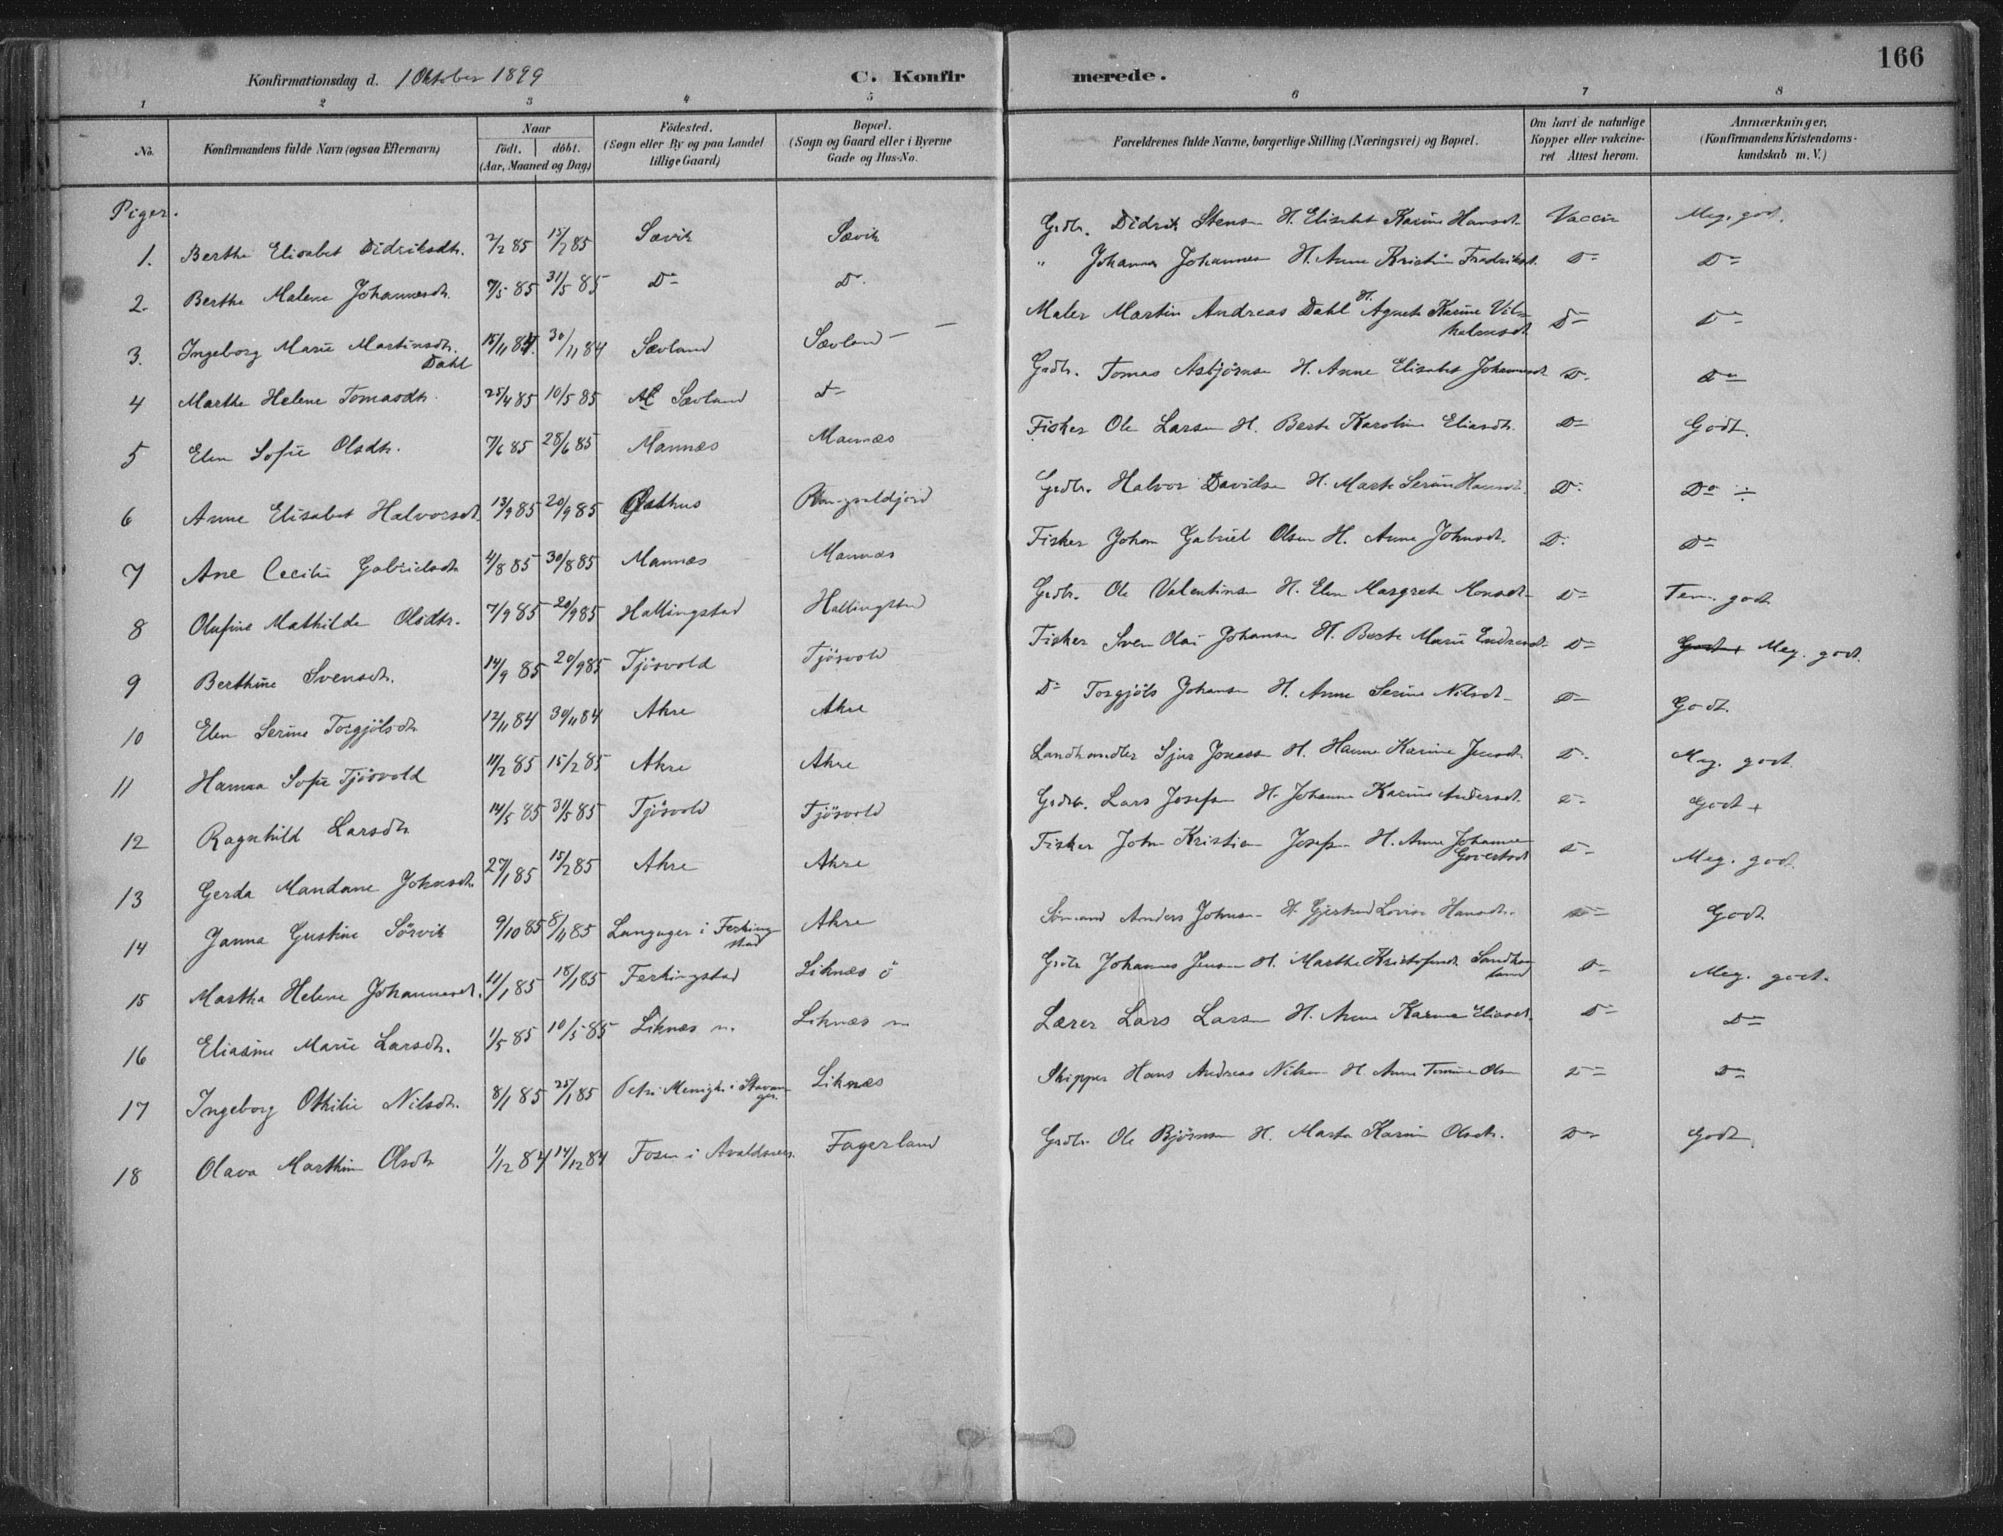 166
Konfirmationsdag d. 1 Oktober 1899 C. Konfirmerede.
1 2 3 4 5 6 7 8
No. Konfirmandens fulde Navn (ogsaa Efternavn) Naar født. døbt. (Aar, Maaned og Dag) Fødested. (Sogn eller By og paa Landet tillige Gaard) Bopæl. (Sogn og Gaard eller i Byerne Gade og Hus-No. Forældrenes fulde Navne, borgerlige Stilling (Næringsvei) og Bopæl. Om havt de naturlige Kopper eller vakcineret Attest herom. Anmærkninger, (Konfirmandens Kristendomskundskab m. V.)
Piger.
1. Berthe Elisabet Didriksdtr. 2/2 85 15/2 85 Sævik Sævik Grdbr. Didrik Stensen H. Elisabet Karine Hansdt. Vaccin Meg. god.
2. Berthe Malene Johannesdt. 7/5 85 31/5 85 Do Do " Johannes Johannesen H. Anne Kristine Fredriksdt. Do Do
3. Ingeborg Marie Martinsdtr. Dahl 15/11 84 30/11 84 Sævland Sævland Maler Martin Andreas Dahl H. Agnete Karine Vilhelmsdt Do Do
4 Marthe Helene Tomasdtr. 25/4 85 10/5 85 Sævland Do Grdbr. Tomas Asbjørnsen H. Anne Elisabet Johannesdt Do Do
5 Elen Sofie Olsdtr. 7/6 85 28/6 85 Mannæs Mannæs Fisker Ole Larsen H. Berte Karoline Eliasdt. Do Godt.
6 Anne Elisabet Halvorsdt. 13/9 85 20/9 85 Østhus Grdbr. Halvor Davidsen H. Marte Serine Hansdt. Do Do ÷
7 Ane Cecilie Gabrielsdt 4/8 85 30/8 85 Mannæs Mannæs Fisker Johan Gabriel Olsen H. Anne Johnsdt. Do Do
8 Olufine Mathilde Olsdtr. 7/9 85 20/9 85 Hallingstad Hallingstad Grdbr. Ole Valentinsen H. Elen Margrete Monsdt Do Tem. godt
9 Berthine Svensdt. 14/9 85 20/9 85 Tjøsvold Tjøsvold Fisker Sven Olai Johansen H. Berte Marie Endresdt. Do Godt + Meg. godt.
10 Elen Serine Torgjølsdt 12/11 84 30/11 84 Akre Akre Do Torgjøls Johansen H. Anne Serine Nilsdt Do Godt.
11 Hanna Sofie Tjøsvold 11/2 85 15/2 85 Akre Akre Landhandler Sjur Jonassen H. Hanne Karine Jensdt. Do Meg. godt
12 Ragnhild Larsdt 14/5 85 31/5 85 Tjøsvold Tjøsvold Grdbr. Lars Josefsen H. Johanne Karine Andersdt. Do Godt +
13 Gerda Mandane Johnsdt. 27/1 85 15/2 85 Akre Akre Fisker John Kristian Josefsen H. Anne Johanne Govertsdt Do Meg. godt
14 Janna Gustine Sørvik 9/10 85 8/11 85 Langager i Ferkingstad Akre Sømand Anders Johnsen H. Gjertrud Lovise Hansdt. Do Godt
15 Martha Helene Johannesdt. 11/1 85 18/1 85 Ferkingstad Liknæs ö Grdbr Johannes Jensen H. Marthe Kristofersdt. Sandhaaland Do Meg. godt.
16 Eliasine Marie Larsdtr. 1/5 85 10/5 85 Liknæs n. Liknæs n Lærer Lars Larsen H. Anne Karine Eliasdt. Do Do
17 Ingeborg Othilie Nilsdtr. 8/1 85 25/1 85 Petri Menigh. i Stavanger. Liknæs Skipper Hans Andreas Nilsen H. Anne Tomine Olsen Do Do
18 Olava Marthine Olsdtr 1/12 84 14/12 84 Fosen i Avaldsnes. Fagerland Grdbr. Ole Bjørnsen H. Marta Karine Olsdt. Do Godt